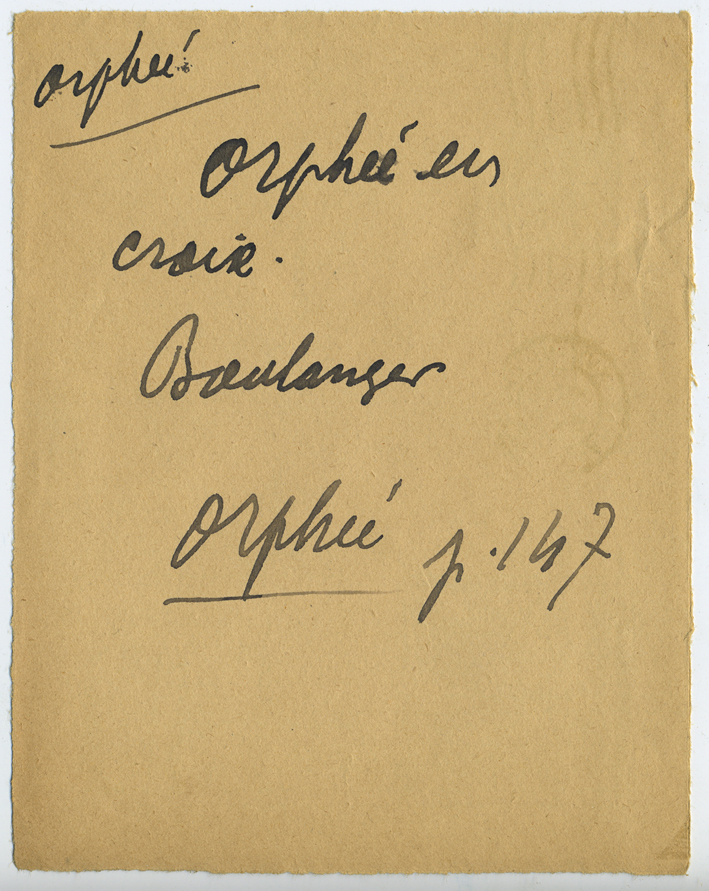 Orphée
Orphée en
croix.
Boulanger
Orphée p. 147